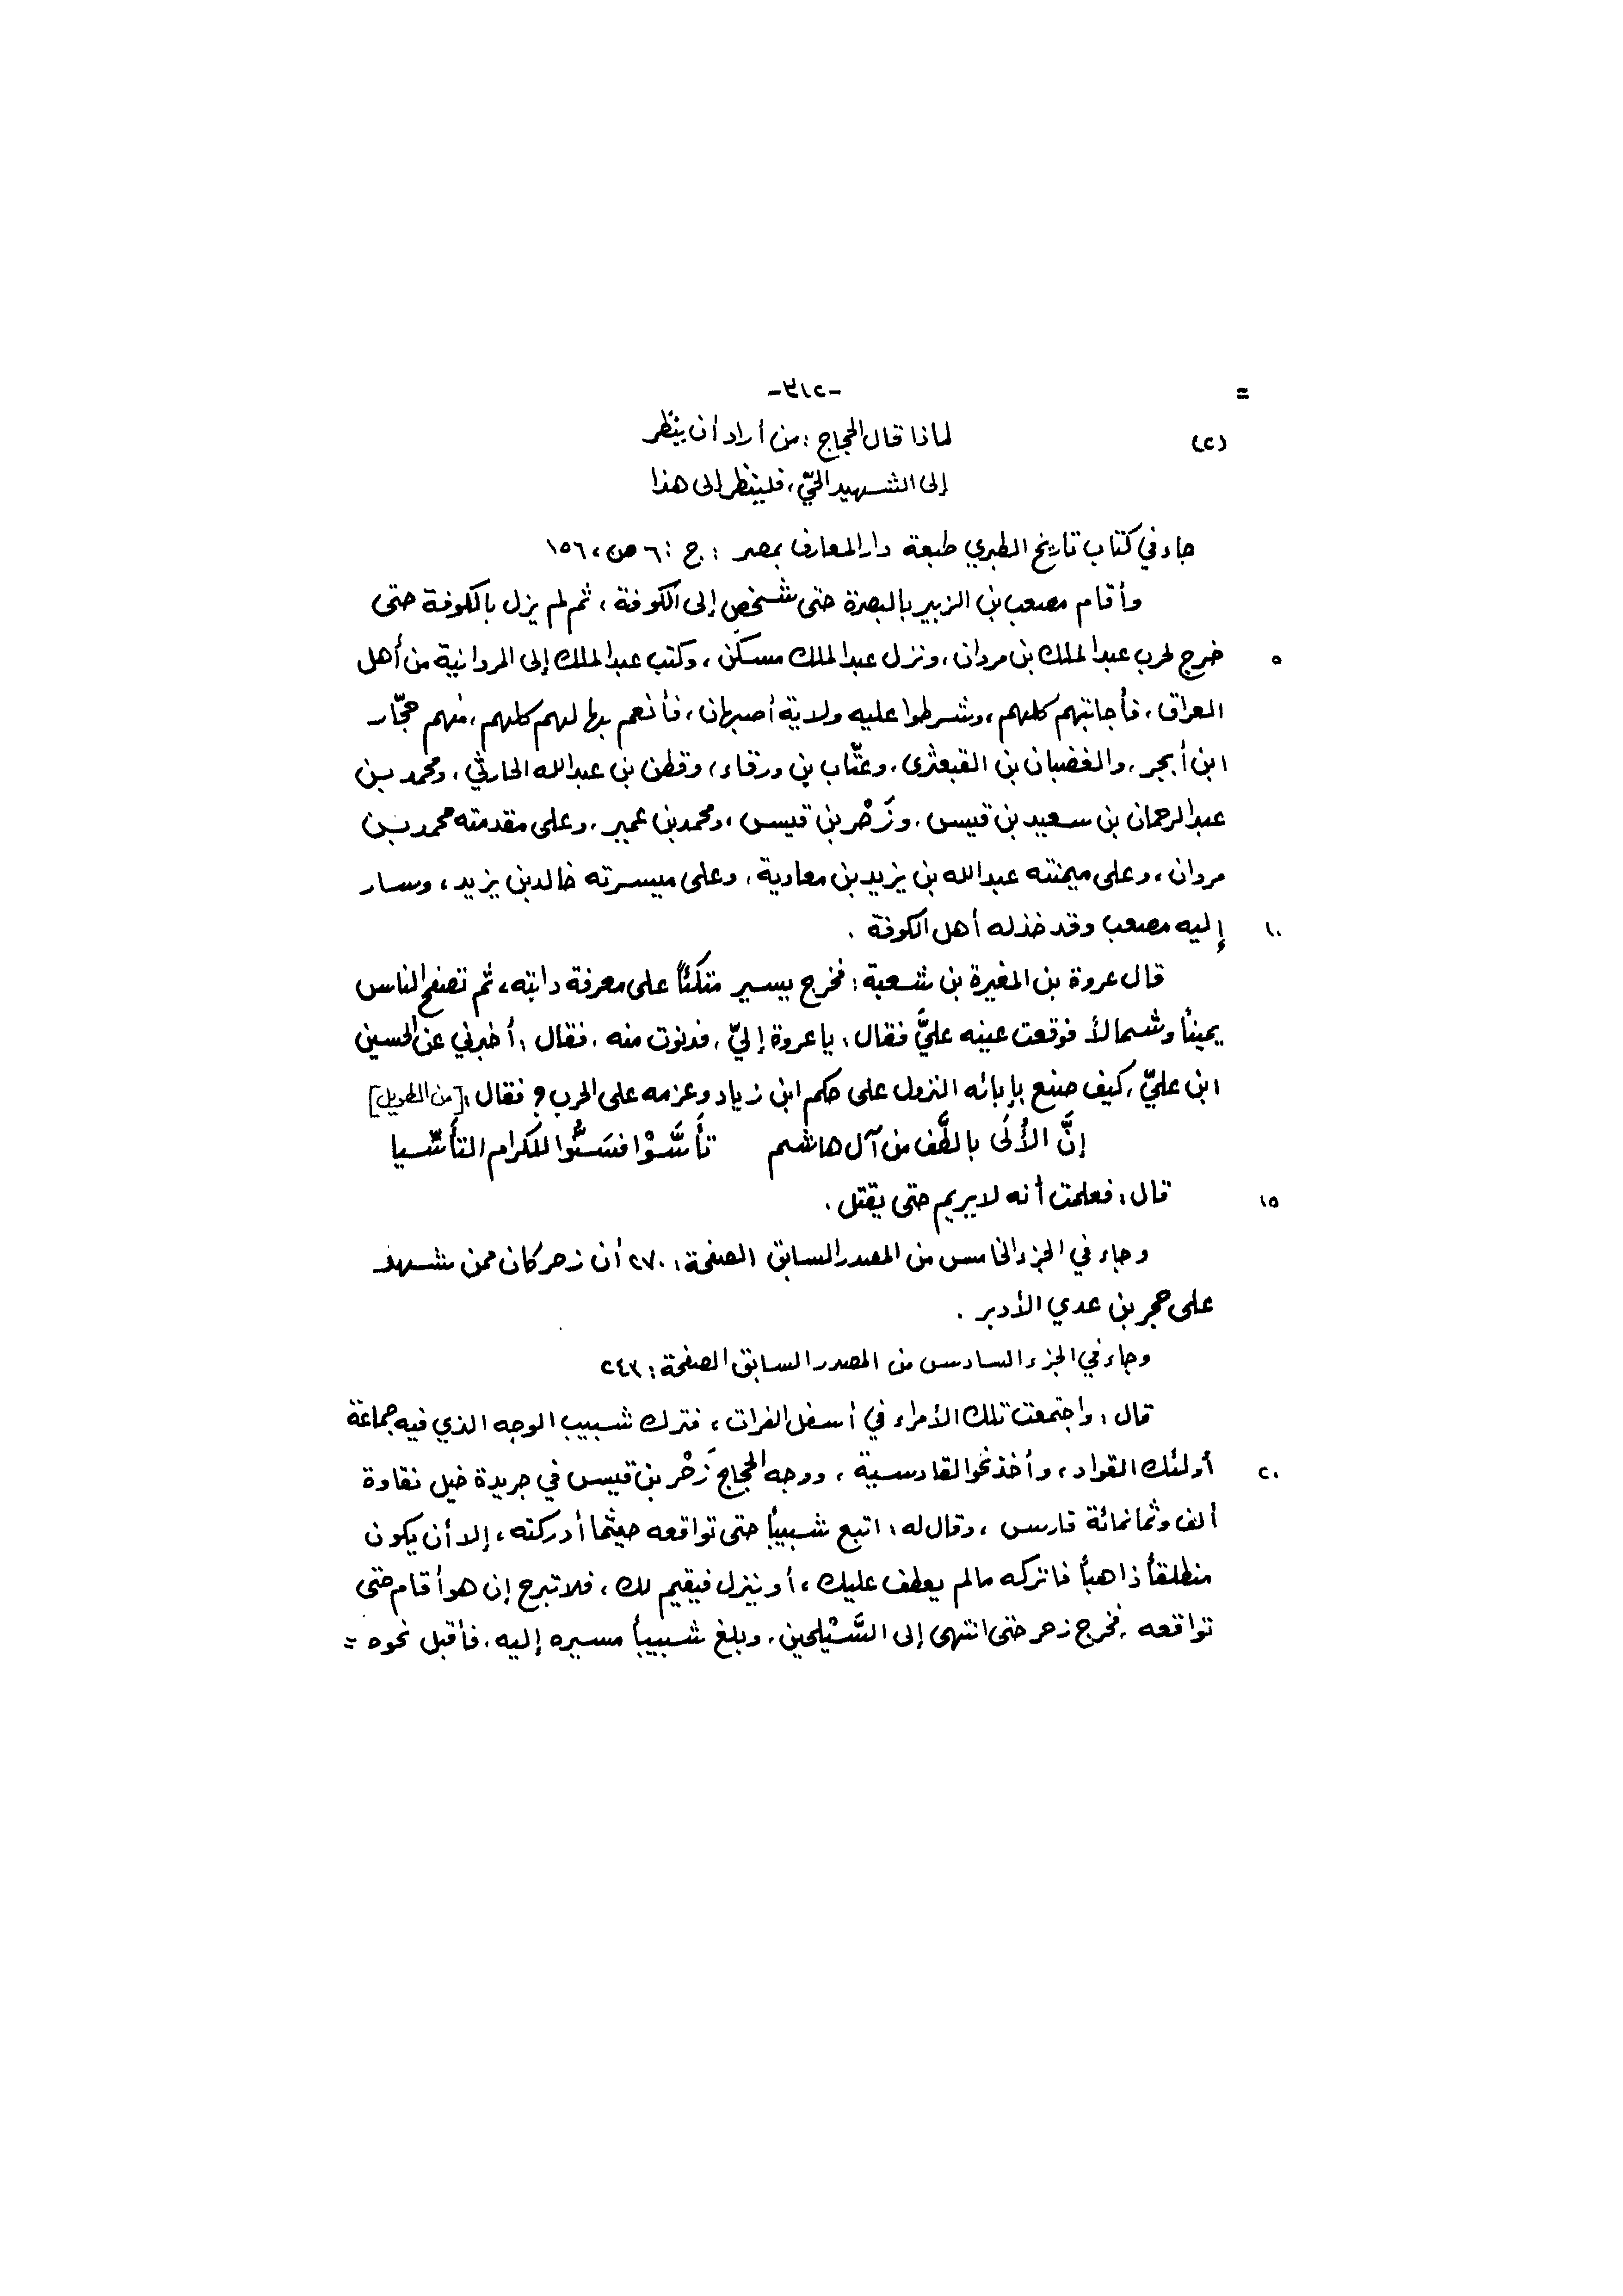 = -٣١٢-
(٢) لماذا قال الحجاج : من أراد أن ينظر
إلى الشهيد الحيّ ، فلينظر إلى هذا
جاء في كتاب تاريخ الطبري طبعة دار المعارف بمصر : ج : ٦ ص ، ١٥٦
وأقام مصعب بن الزبير بالبصرة حتى شخص إلى الكوفة ، ثم لم يزل بالكوفة حتى
٥ خرج لحرب عبد الملك بن مروان ، ونزل عبد الملك مسكن ، وكتب عبد الملك إلى المروانية من أهل
العراق ، فأجابتهم كلهم ، وشرطوا عليه ولاية أصبهان ، فأنعم بها لهم كلهم ، منهم حجّار
ابن أبجر ، والغضبان بن القبعثرى ، وعتّاب بن ورقاء ، وقطن بن عبد الله الحارثي ، ومحمد بن
عبد الرحمان بن سعيد بن قيس ، وزَحْر بن قيس ، ومحمد بن عمير ، وعلى مقدمته محمد بن
مروان ، وعلى ميمنته عبد الله بن يزيد بن معاوية ، وعلى ميسرته خالد بن يزيد ، وسار
١٠ إليه مصعب وقد خذله أهل الكوفة .
قال عروة بن المغيرة بن شعبة : فخرج يسير متكئاً على معرفة دابته ، ثم تصفح الناس
يميناً وشمالاً فوقعت عينه عليَّ فقال : يا عروة إليّ ، فدنوت منه ، فقال : أخبرني عن الحسين
ابن عليّ ، كيف صنع بإبائه النزول على حكم ابن زياد وعزمه على الحرب ؟ فقال : [من الطويل]
إنَّ الأُلَى بالطَّف من آل هاشم تأَسَّوْا فسَنُّوا للكرام التأسّيا
١٥ قال : فعلمت أنه لا يريم حتى يقتل .
وجاء في الجزء الخامس من المصدر السابق الصفحة : ٢٧٠ أن زحر كان ممن شهد
على حجر بن عدي الأدبر .
وجاء في الجزء السادس من المصدر السابق الصفحة : ٢٤٣
قال : واجتمعت تلك الأمراء في أسفل الفرات ، فترك شبيب الوجه الذي فيه جماعة
٢٠ أولئك القواد ، وأخذ نحو القادسية ، ووجه الحجاج زَحْر بن قيس في جريدة خيل نقاوة
ألف وثمانمائة فارس ، وقال له : اتبع شبيباً حتى تواقعه حيثما أدركته ، إلا أن يكون
منطلقاً ذاهباً فاتركه ما لم يعطف عليك ، أو ينزل فيقيم لك ، فلا تبرح إن هو أقام حتى
تواقعه ، فخرج زحر حتى انتهى إلى السَّيْلحين ، وبلغ شبيباً مسيره إليه ، فأقبل نحوه =